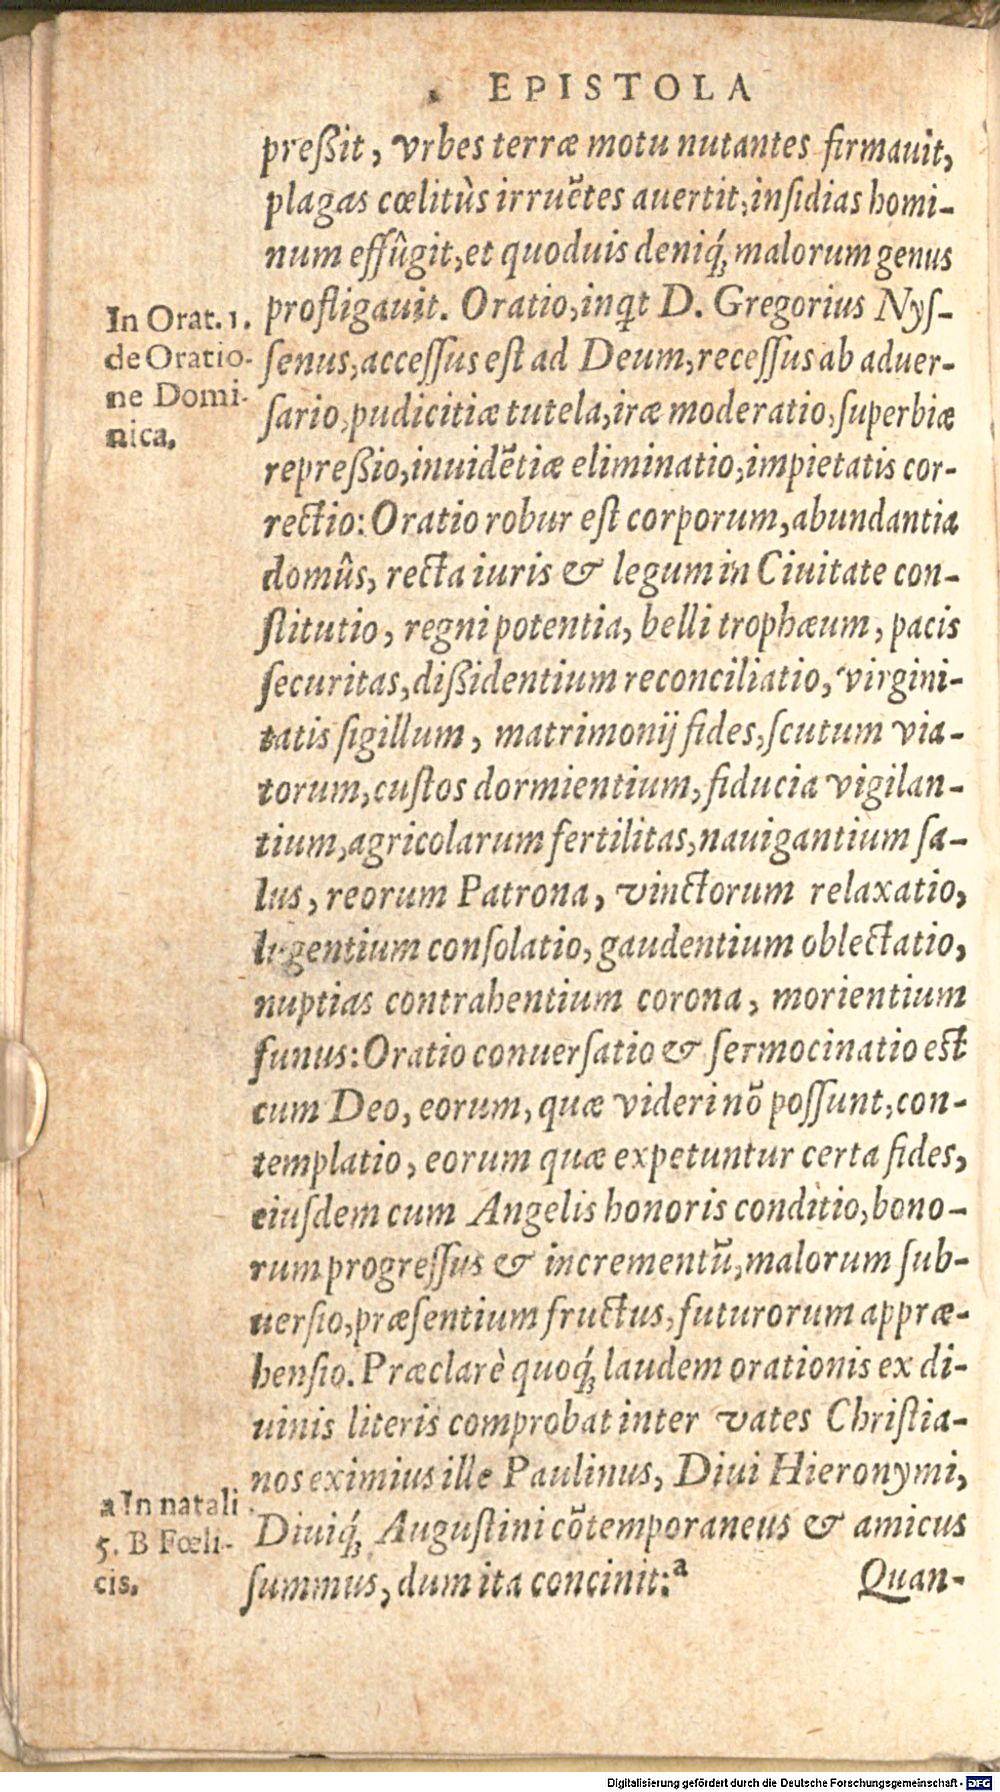 EPISTOLA
preßit, vrbes terræ motu nutantes firmauit,
plagas cœlitùs irruẽtes auertit, insidias homi-
num effûgit, et quoduis deniq́ꝫ malorum genus
profligauit. Oratio, inqt D. Gregorius Nyſ-
In Orat. 1.
de Oratio-
ne Domi-
nica.
ſenus, acceſſus eſt ad Deum, receſſus ab aduer-
ſario, pudicitiæ tutela, iræ moderatio, ſuperbiæ
repreßio, inuidẽtiæ eliminatio, impietatis cor-
rectio: Oratio robur eſt corporum, abundantia
domûs, recta iuris & legum in Ciuitate con-
ſtitutio, regni potentia, belli trophæum, pacis
ſecuritas, dißidentium reconciliatio, virgini-
tatis ſigillum, matrimonij fides, ſcutum via-
torum, cuſtos dormientium, fiducia vigilan-
tium, agricolarum fertilitas, nauigantium ſa-
lus, reorum Patrona, vinctorum relaxatio,
lugentium conſolatio, gaudentium oblectatio,
nuptias contrahentium corona, morientium
funus: Oratio conuerſatio & ſermocinatio eſt
cum Deo, eorum, quæ videri nõ poſſunt, con-
templatio, eorum quæ expetuntur certa fides,
eiuſdem cum Angelis honoris conditio, bono-
rum progreſſus & incrementũ, malorum ſub-
uerſio, præſentium fructus, futurorum appræ-
henſio. Præclarè quoq́ꝫ laudem orationis ex di-
uinis literis comprobat inter vates Chriſtia-
nos eximius ille Paulinus, Diui Hieronymi,
Diuiq́ꝫ Auguſtini cõtemporaneus & amicus
ſummus, dum ita concinit:ª
a In natali
5. B Fœli-
cis.
Quan-
Digitalisierung gefördert durch die Deutsche Forschungsgemeinschaft - DFG